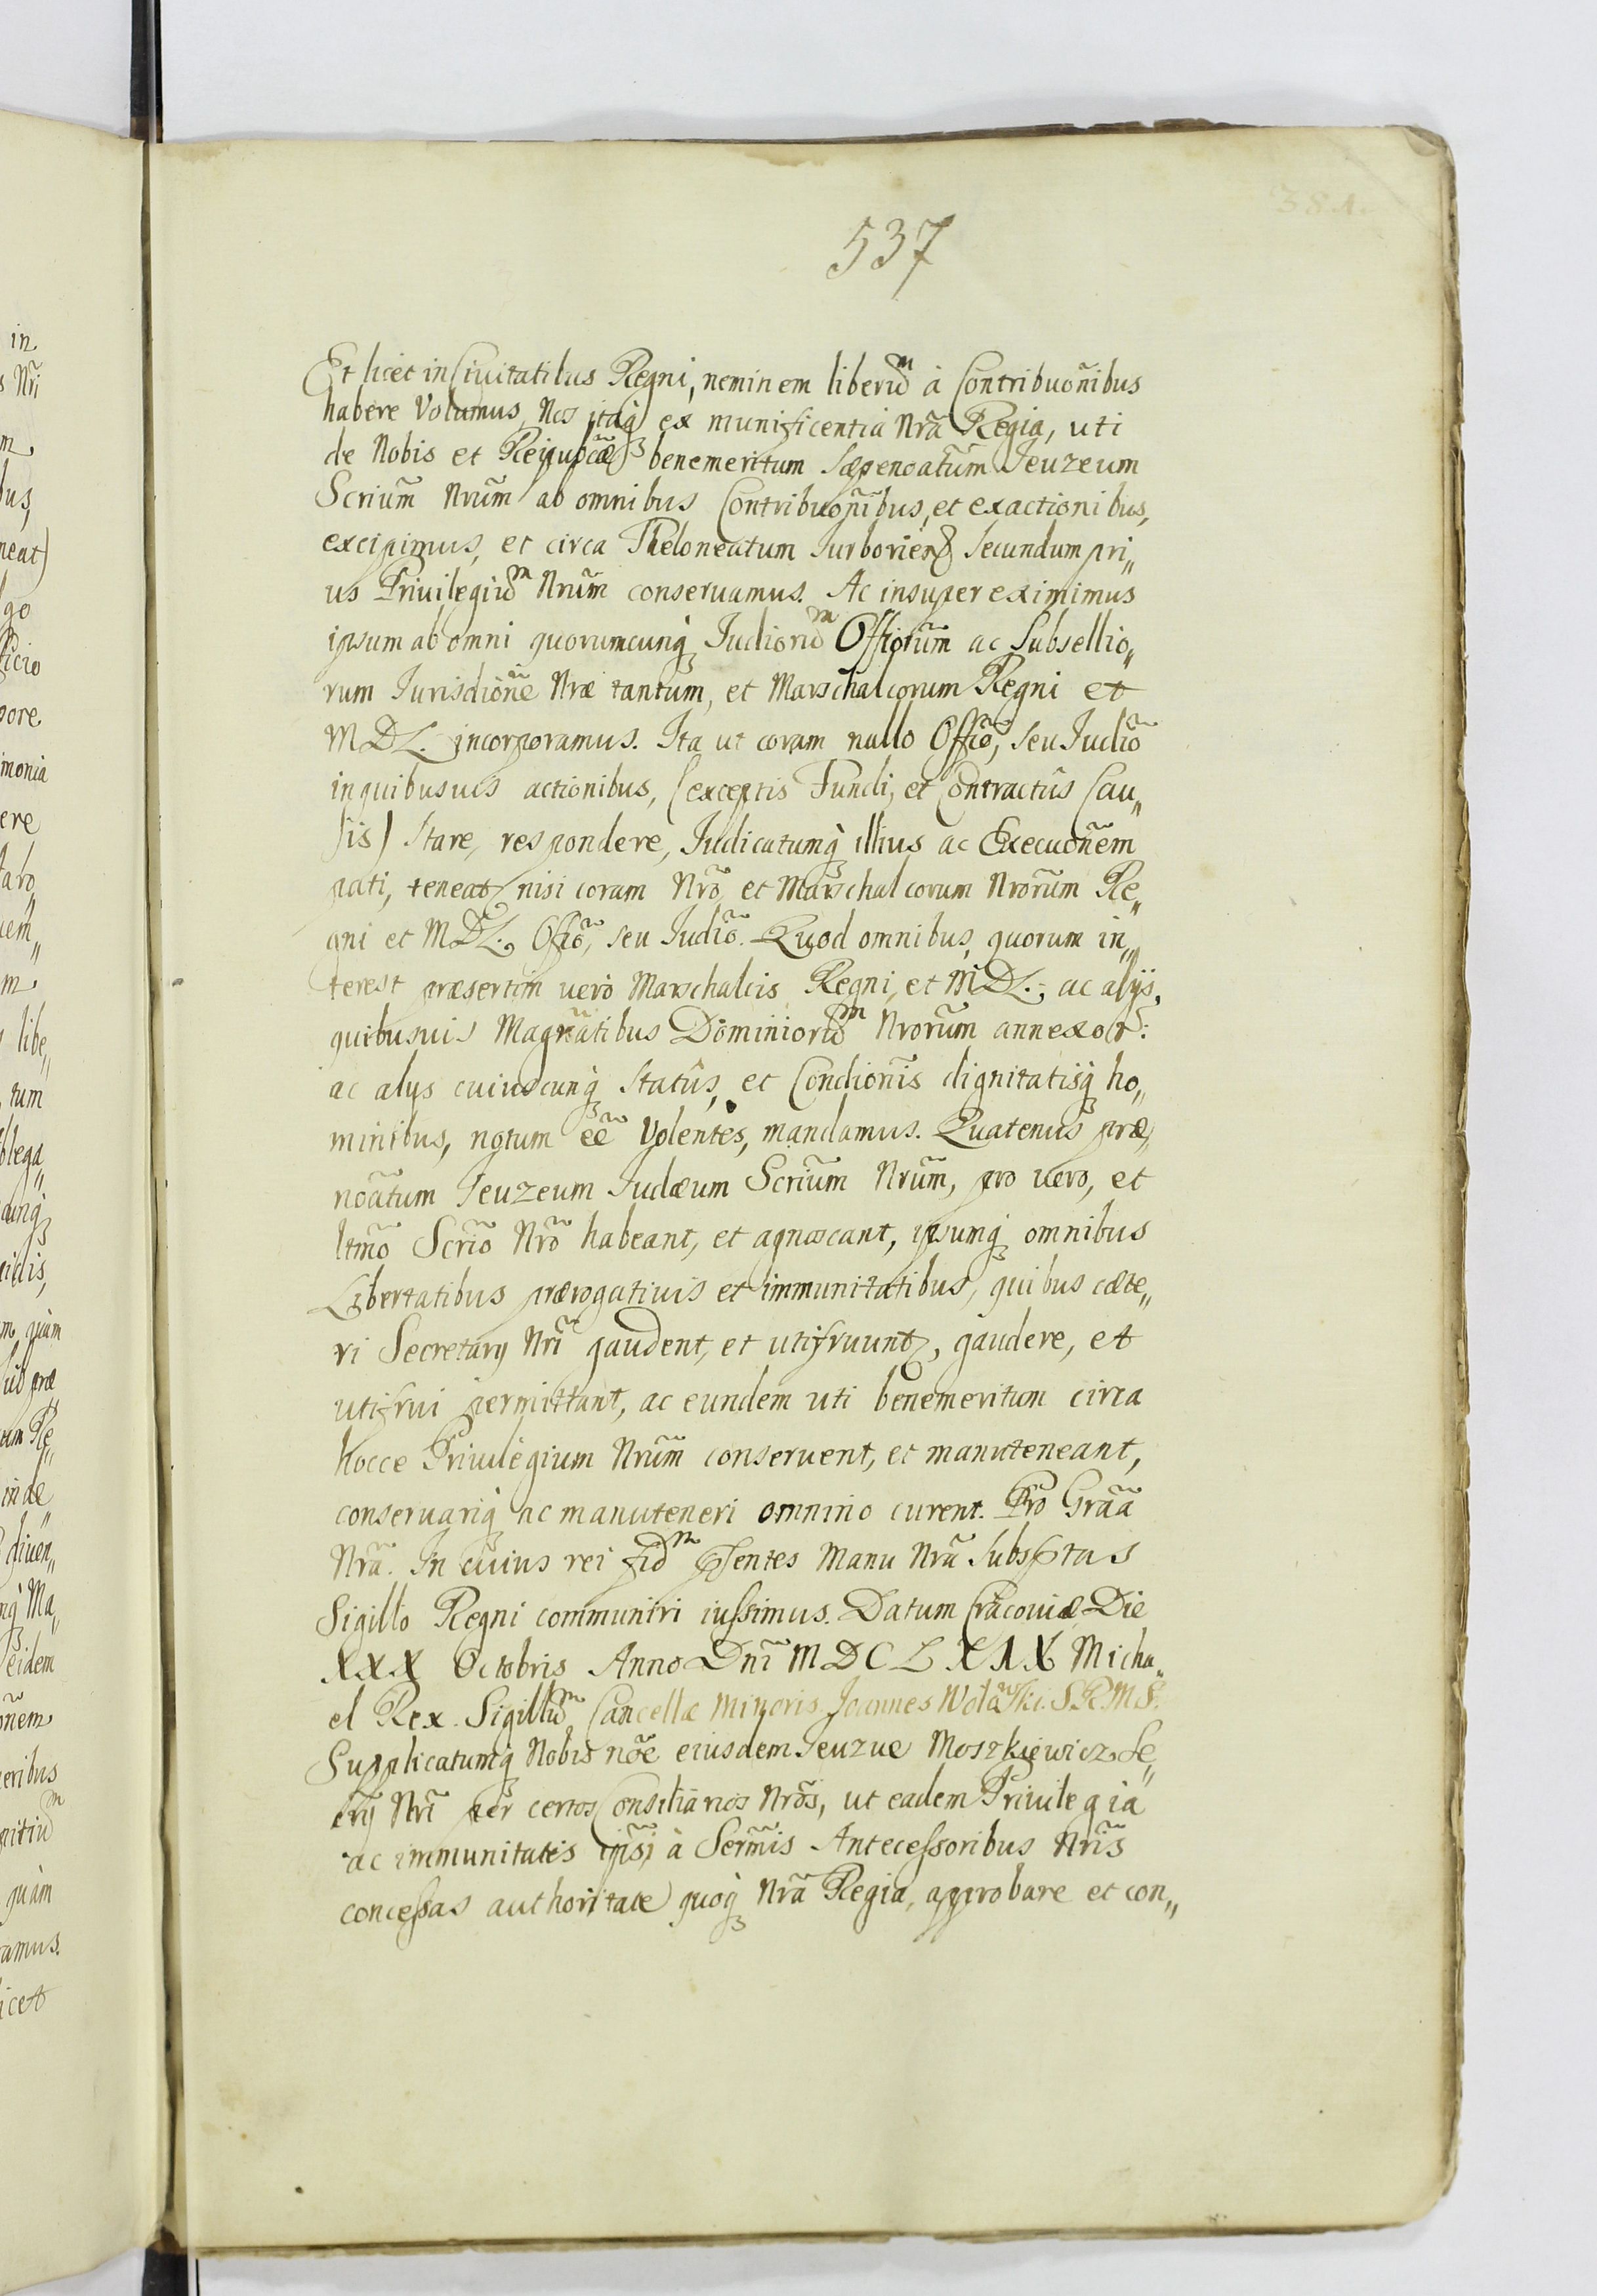 381.
537
Et licet in Ciuitatibus Regni, neminem liberũᵐ à Contribuõnibus
habere Volumus, Nos itaq̃ ex munificentia Nrã Regia, uti
de Nobis et Reipubcæ benemeritum Sæpenoatũm Jeuzeum
Scriũm Nrũm ab omnibus Contribuõnibus, et exactionibus,
excipimus, et circa Theloneatum Iurborien̄ secundum pri„
us Priuilegiũᵐ Nrũm conseruamus. Ac insuper eximimus
ipsum ab omni quorumcunq̃ Iudiorũᵐ Offiorũm ac Subsellio„
rum Iurisdiõne Nræ tantum, et Marschalcorum Regni et
MDL. incorporamus. Ita ut coram nullo Offiõ, seu Iudiõ
in quibusuis actionibus, (exceptis Fundi, et Contractûs Cau„
sis) stare, respondere, Iudicatumq̃ illius ac Execuõnem
pati, teneat̃ nisi coram Nrõ, et Marschalcorum Nrorũm Re„
gni et MDL. Offiõ, seu Iudiõ. Quod omnibus, quorum in„
terest præsertim uero Marschalcis Regni, et MDL. ac alijs,
quibusuis Magnatibus Dominiorũᵐ Nrorũm annexor̃:
ac alys cuiuscunq̃ Statûs, et Condiõnis dignitatisq̃ ho„
minibus, notum eẽ Volentes, mandamus. Quatenus præ„
noãtum Jeuzeum Iudæum Scriũm Nrũm, pro uero, et
ltmõ Scriõ Nrõ habeant, et agnoscant, ipsumq̃ omnibus
Libertatibus prærogatiuis et immunitatibus, quibus cæte„
ri Secretary Nrĩ gaudent, et utifruunt̃, gaudere, et
utifrui permittant, ac eundem uti benemeritum circa
hocce Priuilegium Nrũm conseruent, et manuteneant,
conseruariq̃ ac manuteneri omnino curent. Pro Graã
Nrã. In cuius rei fidᵐ p̃sentes Manu Nrã subsc̃ptas
Sigillo Regni communiri iussimus. Datum Cracouiæ Die
XXX Octobris Anno Dnĩ MDCLXIX Micha„
el Rex. Sigillũᵐ Cancellæ Minoris Joannes Wolãski. S.R.M.S.
Supplicatumq̃ Nobis noẽ eiusdem Jeuzue Moszkiewicz Se„
crỹ Nrĩ per certos Consiliarios Nrõs, ut eadem Priuilegia
ac immunitates ipsi à Serm̃is Antecessoribus Nrĩs
concessas authoritate quoq̃ Nrã Regia, approbare et con„